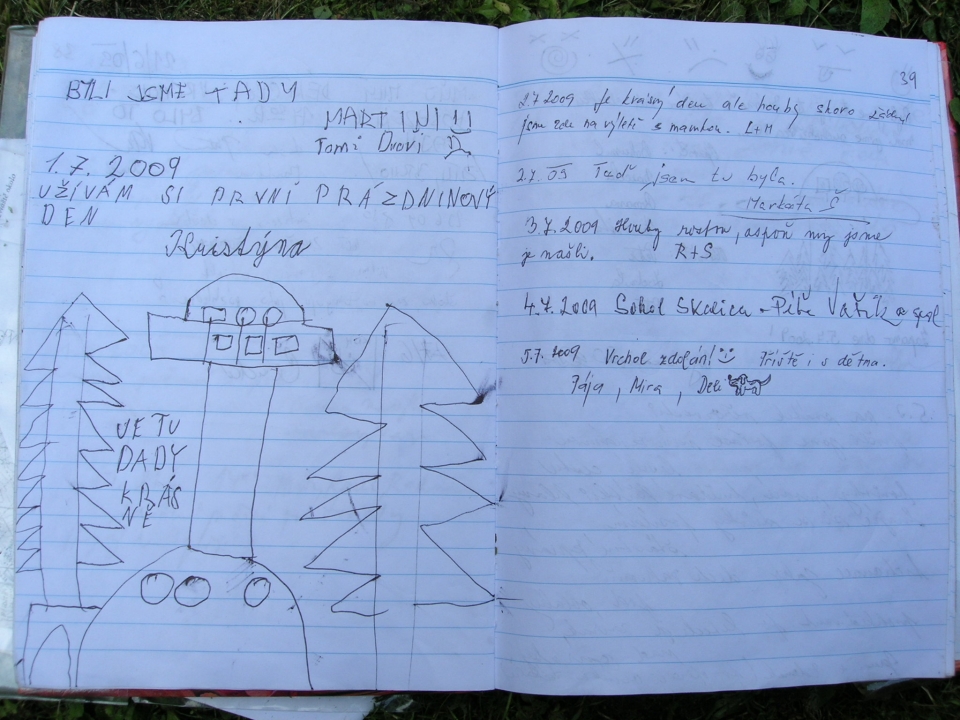 BYLI JSME TADY
MARTINI
Tomi
1.7. 2009
UŽÍVÁM SI PRVNÍ PRÁZDNINOVÝ
DEN
Kristýna
JE TU
DADY
KRÁS
NĚ
39
2.7 2009 Je krásný den ale houby skoro žádný
jsme zde na výletě s mamkou. L+H
2.7. 09 Teď jsem tu byla.
Markéta Š
3.7.2009 Houby rostou, aspoň my jsme
je našli. R+S
4.7.2009 Sokol Skalica - Péťa Vařík a spol
5.7. 2009 Vrchol zdolán! Příště i s dětma.
Jája, Mira,